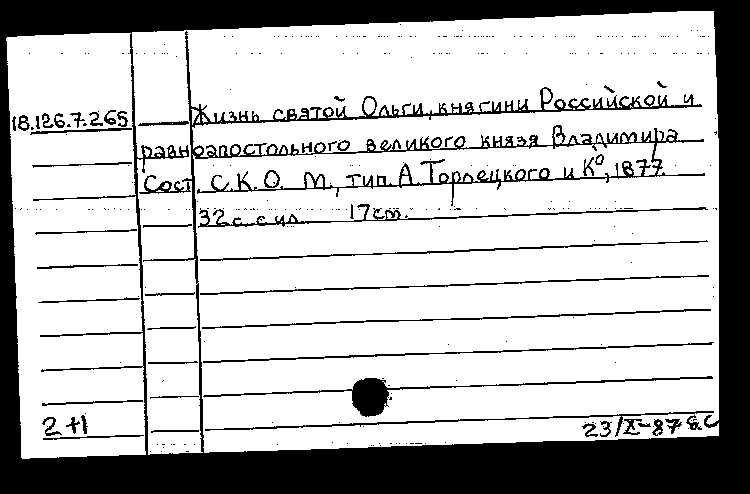 18.126.7.265 Жизнь святой Ольги, княгини Российской и
равноапостольного великого князя Владимира
Сост. С.К.О. М., тип. А. Торлецкого и К⁰, 1877.
32 с. с ил. 17 см.
2+1
23/X-87